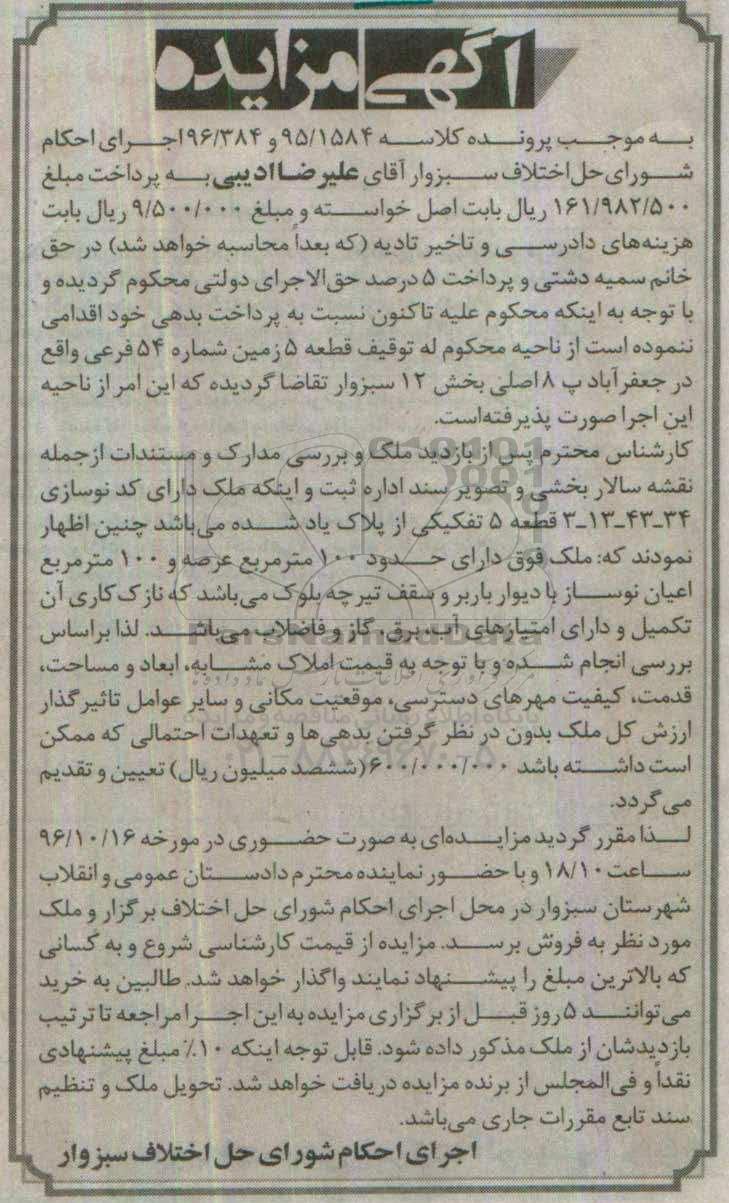 آگهی مزایده
به موجب پرونده کلاسه ۹۵/۱۵۸۴ و ۹۶/۳۸۴ اجرای احکام
شورای حل اختلاف سبزوار آقای علیرضا ادیبی به پرداخت مبلغ
۱۶۱/۹۸۲/۵۰۰ ریال بابت اصل خواسته و مبلغ ۹/۵۰۰/۰۰۰ ریال بابت
هزینه‌های دادرسی و تاخیر تادیه (که بعداً محاسبه خواهد شد) در حق
خانم سمیه دشتی و پرداخت ۵ درصد حق‌الاجرای دولتی محکوم گردیده و
با توجه به اینکه محکوم علیه تاکنون نسبت به پرداخت بدهی خود اقدامی
ننموده است از ناحیه محکوم له توقیف قطعه ۵ زمین شماره ۵۴ فرعی واقع
در جعفرآباد پ ۸ اصلی بخش ۱۲ سبزوار تقاضا گردیده که این امر از ناحیه
این اجرا صورت پذیرفته‌است.
کارشناس محترم پس از بازدید ملک و بررسی مدارک و مستندات ازجمله
نقشه سالار بخشی و تصویر سند اداره ثبت و اینکه ملک دارای کد نوسازی
۳۴-۴۳-۱۳-۳ قطعه ۵ تفکیکی از پلاک یاد شده می‌باشد چنین اظهار
نمودند که: ملک فوق دارای حدود ۱۰۰ مترمربع عرصه و ۱۰۰ مترمربع
اعیان نوساز با دیوار باربر و سقف تیرچه بلوک می‌باشد که نازک کاری آن
تکمیل و دارای امتیازهای آب، برق، گاز و فاضلاب می‌باشد. لذا براساس
بررسی انجام شده و با توجه به قیمت املاک مشابه، ابعاد و مساحت،
قدمت، کیفیت مهرهای دسترسی، موقعیت مکانی و سایر عوامل تاثیرگذار
ارزش کل ملک بدون در نظر گرفتن بدهی‌ها و تعهدات احتمالی که ممکن
است داشته باشد ۶۰۰/۰۰۰/۰۰۰ (ششصد میلیون ریال) تعیین و تقدیم
می‌گردد.
لذا مقرر گردید مزایده‌ای به صورت حضوری در مورخه ۹۶/۱۰/۱۶
ساعت ۱۸/۱۰ و با حضور نماینده محترم دادستان عمومی و انقلاب
شهرستان سبزوار در محل اجرای احکام شورای حل اختلاف برگزار و ملک
مورد نظر به فروش برسد. مزایده از قیمت کارشناسی شروع و به کسانی
که بالاترین مبلغ را پیشنهاد نمایند واگذار خواهد شد. طالبین به خرید
می‌توانند ۵ روز قبل از برگزاری مزایده به این اجرا مراجعه تا ترتیب
بازدیدشان از ملک مذکور داده شود. قابل توجه اینکه ۱۰٪ مبلغ پیشنهادی
نقداً و فی‌المجلس از برنده مزایده دریافت خواهد شد. تحویل ملک و تنظیم
سند تابع مقررات جاری می‌باشد.
اجرای احکام شورای حل اختلاف سبزوار